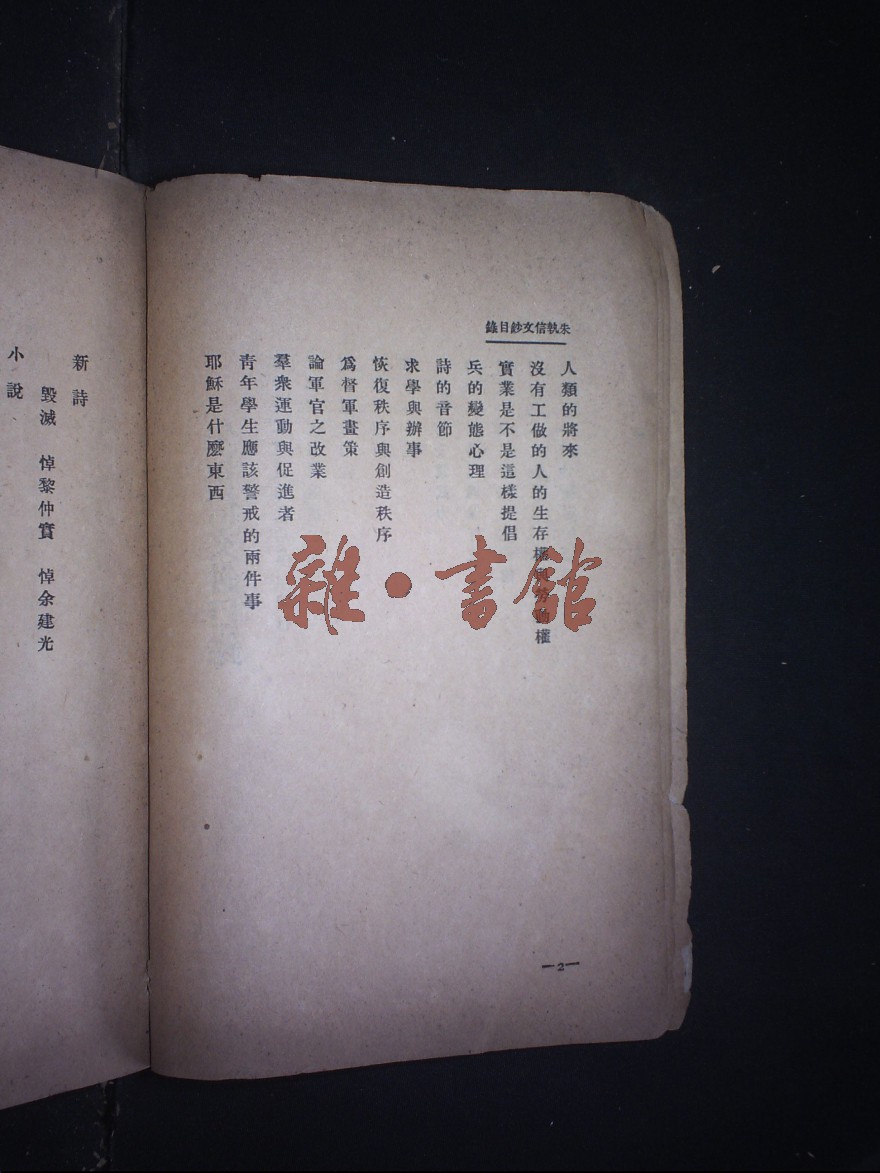 朱執信文鈔目錄
人類的將來
沒有工做的人的生存權與勞動權
實業是不是這樣提倡
兵的變態心理
詩的音節
求學與辦事
恢復秩序與創造秩序
爲督軍畫策
論軍官之改業
羣衆運動與促進者
靑年學生應該警戒的兩件事
耶穌是什麽東西
—2—
新詩
毀滅 悼黎仲實 悼余建光
小說
雜·書館